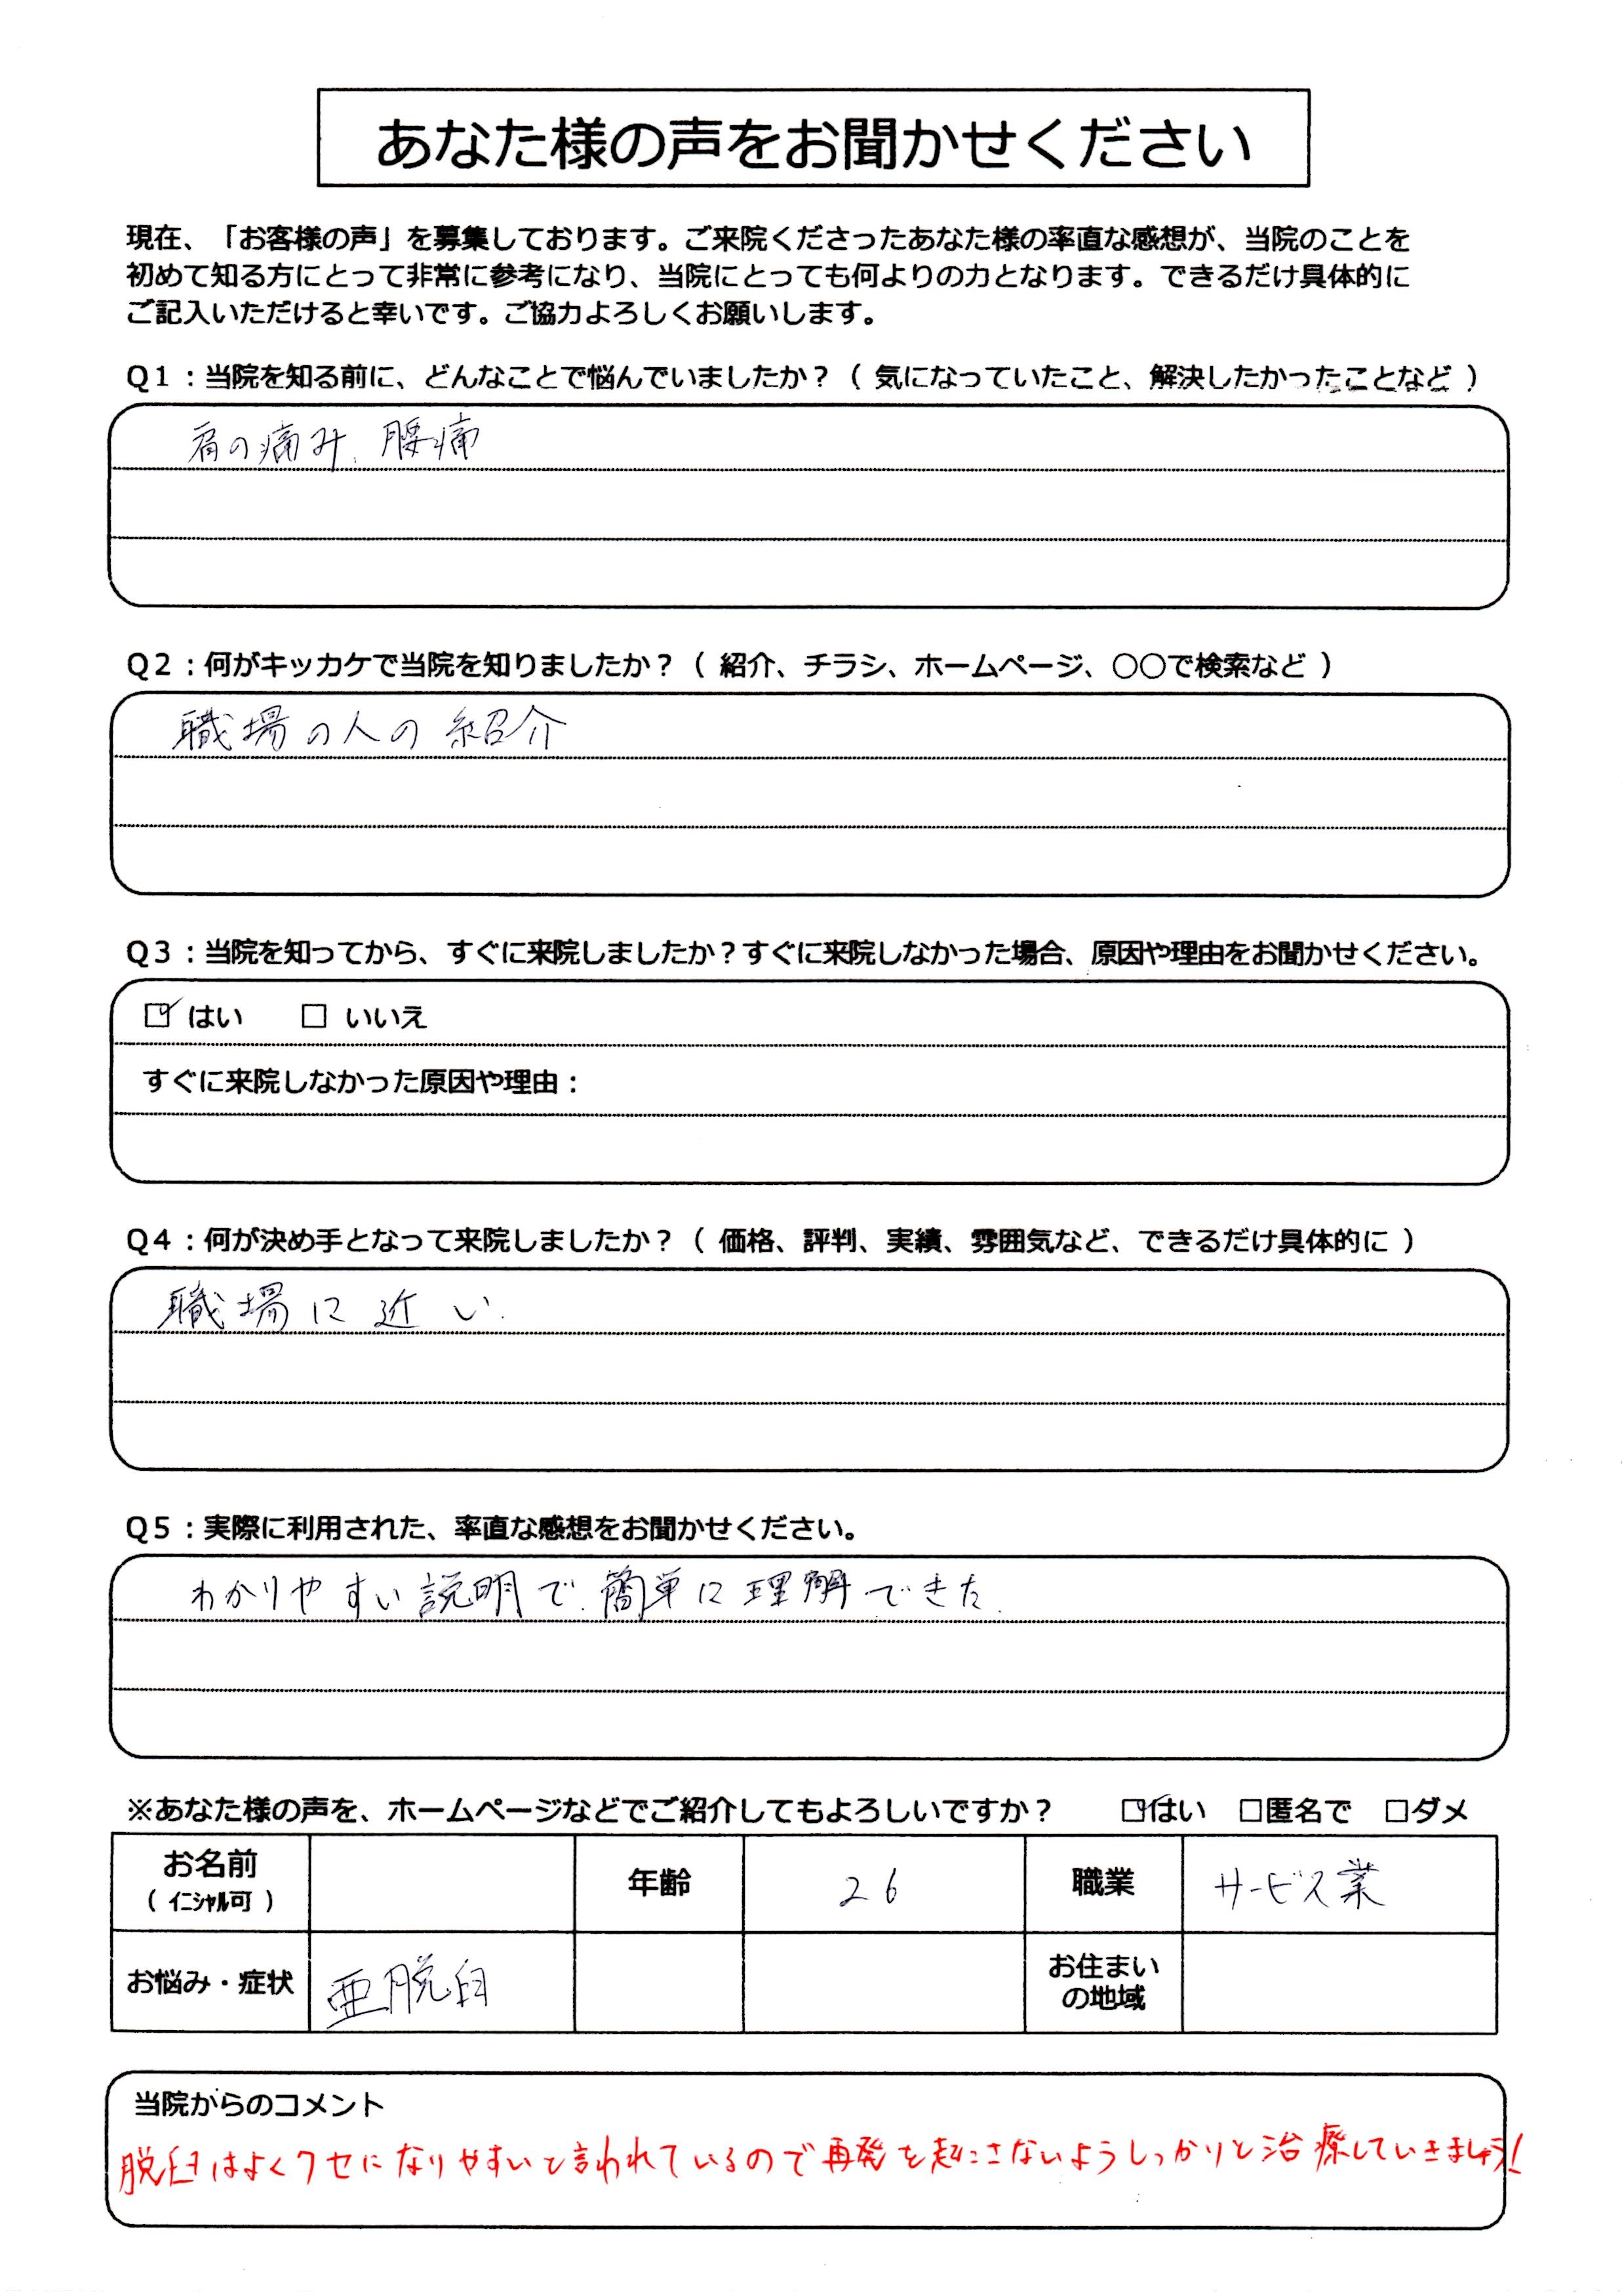 あなた様の声をお聞かせください
現在、「お客様の声」を募集しております。ご来院くださったあなた様の率直な感想が、当院のことを
初めて知る方にとって非常に参考になり、当院にとっても何よりの力となります。できるだけ具体的に
ご記入いただけると幸いです。ご協力よろしくお願いします。
Q1：当院を知る前に、どんなことで悩んでいましたか？（ 気になっていたこと、解決したかったことなど ）
肩の痛み、腰痛
Q2：何がキッカケで当院を知りましたか？（ 紹介、チラシ、ホームページ、○○で検索など ）
職場の人の紹介
Q3：当院を知ってから、すぐに来院しましたか？すぐに来院しなかった場合、原因や理由をお聞かせください。
☑ はい　□ いいえ
すぐに来院しなかった原因や理由：
Q4：何が決め手となって来院しましたか？（ 価格、評判、実績、雰囲気など、できるだけ具体的に ）
職場に近い.
Q5：実際に利用された、率直な感想をお聞かせください。
わかりやすい説明で、簡単に理解できた.
※あなた様の声を、ホームページなどでご紹介してもよろしいですか？　☑はい　□匿名で　□ダメ
お名前　年齢　26　職業　サービス業
（ イニシャル可 ）
お悩み・症状　亜脱臼　お住まい
の地域
当院からのコメント
脱臼はよくクセになりやすいと言われているので再発を起こさないようしっかりと治療していきましょう!